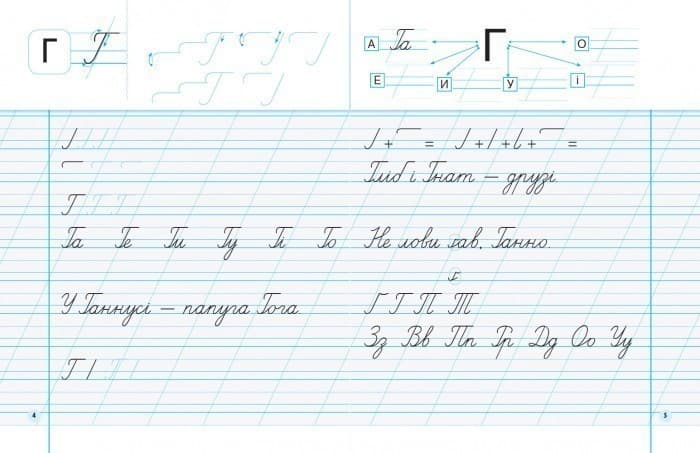 Г Г
А Га Г О
Е И У І
Г
Га Ге Ги Гу Гі Го
У Ганнусі — папуга Гога.
4
+ = + + + =
Гліб і Гнат — друзі.
Не лови ґав, Ганно.
Г П Т
Зз Вв Пп Гг Дд Оо Уу
5